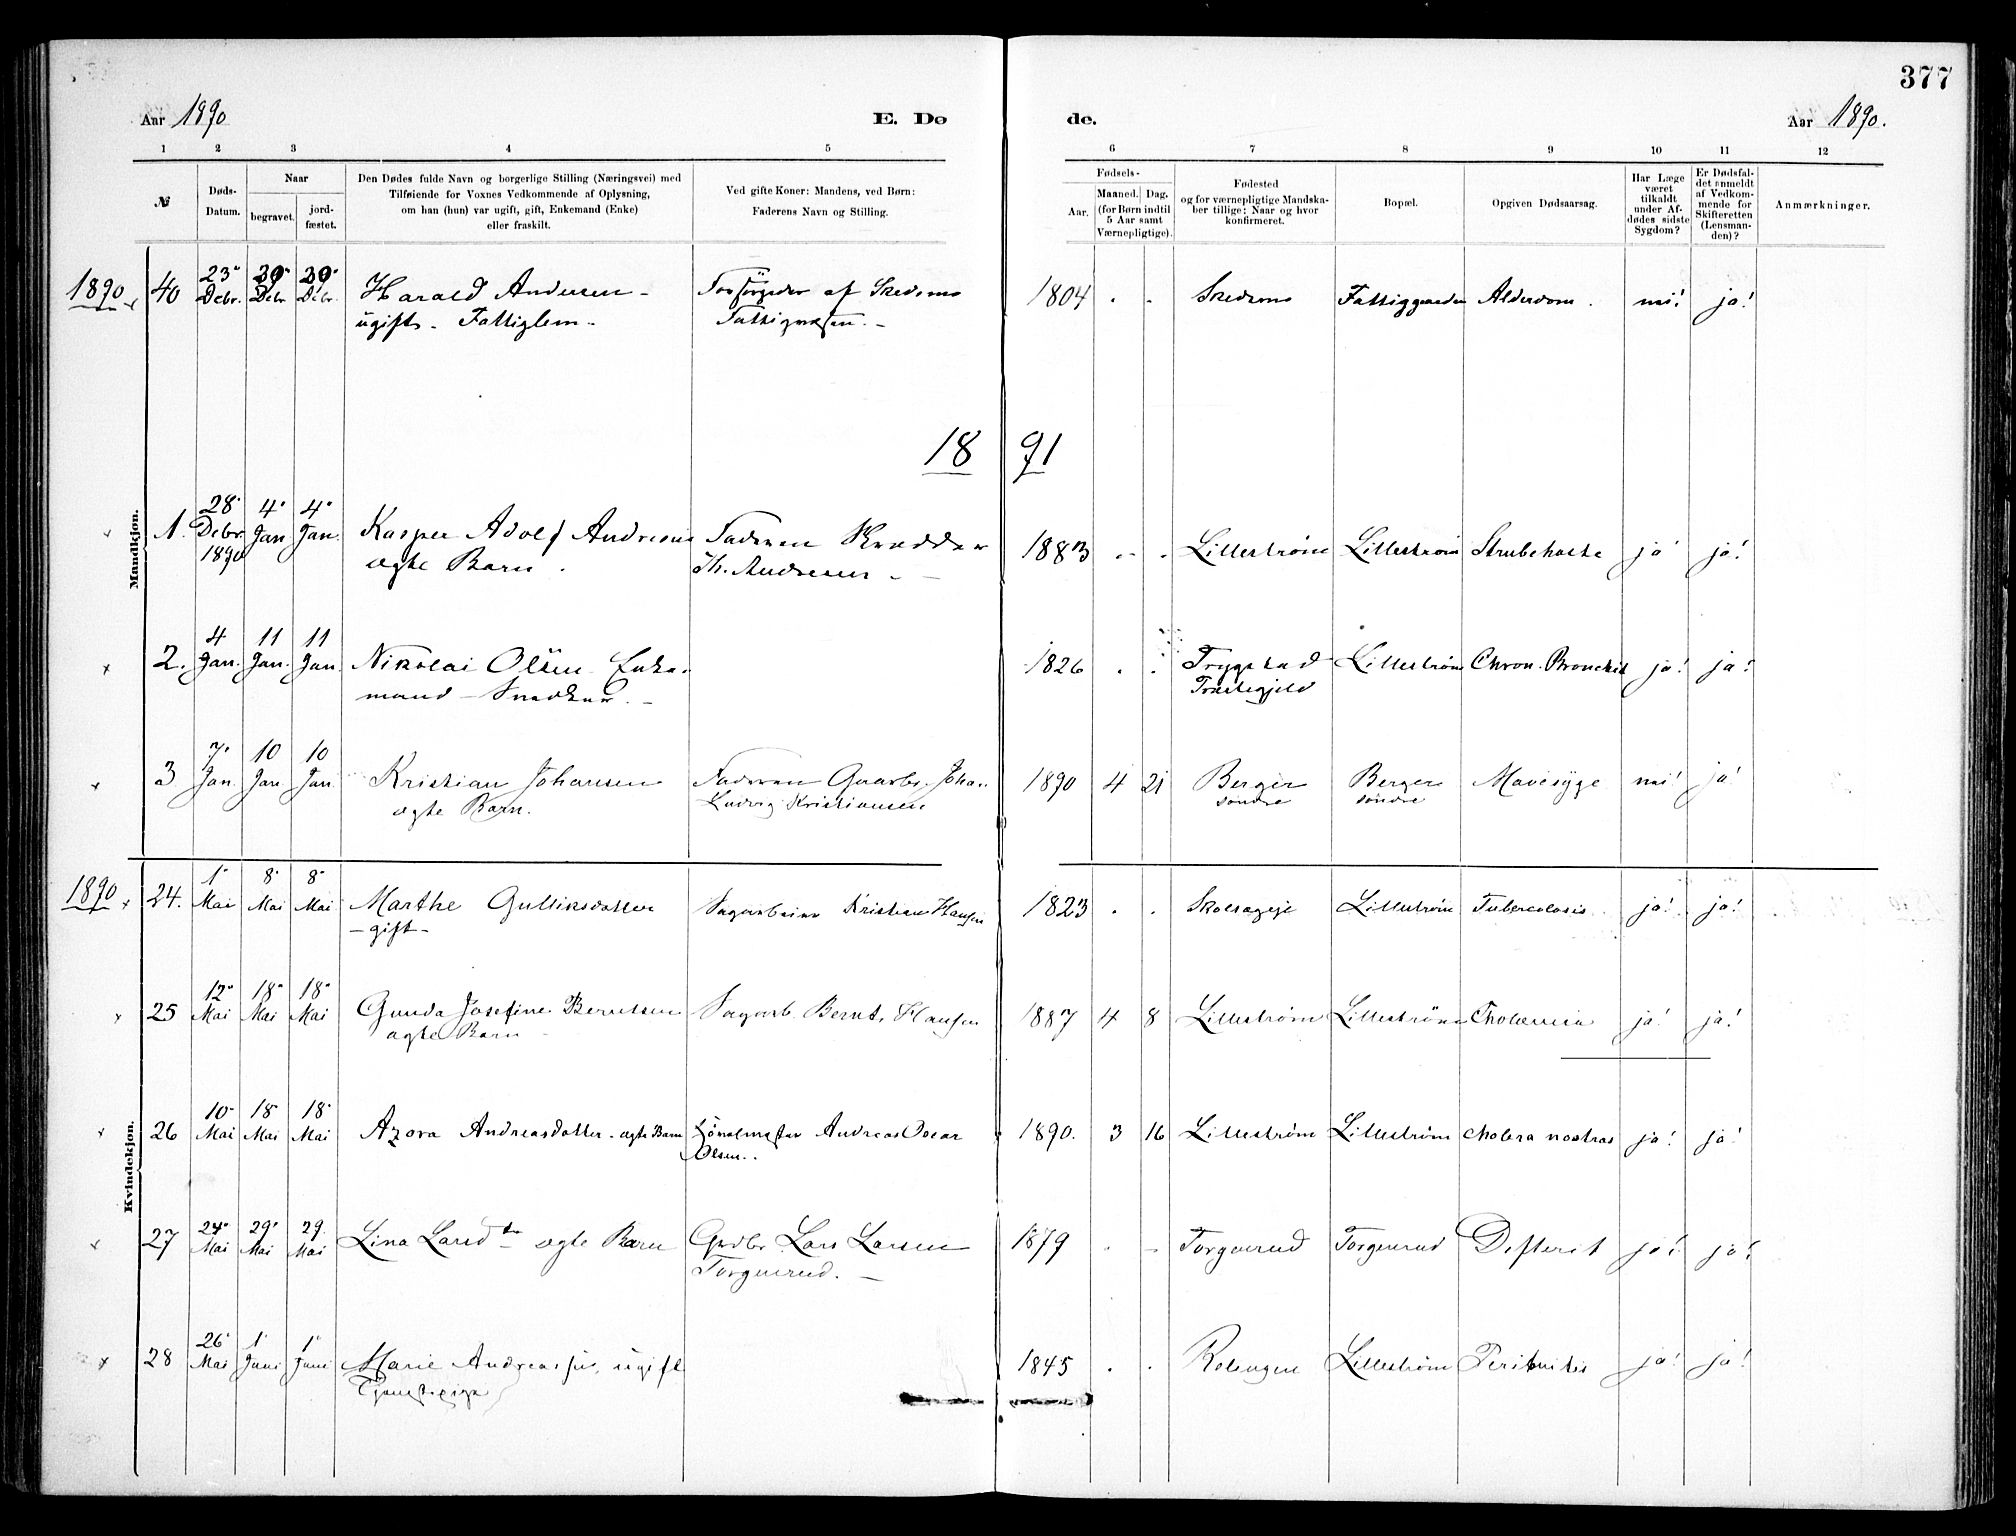 377
Aar 1890
E. Dø
de.
Aar 1890.
1 2 3 4 5 6 7 8 9 10 11 12
№
Døds-
Datum.
Naar
begravet.
jord-
fæstet.
Den Dødes fulde Navn og borgerlige Stilling (Næringsvei) med
Tilføiende for Voxnes Vedkommende af Oplysning,
om han (hun) var ugift, gift, Enkemand (Enke)
eller fraskilt.
Ved gifte Koner: Mandens, ved Børn:
Faderens Navn og Stilling.
Fødsels-
Aar.
Maaned. Dag.
(for Børn indtil
5 Aar samt
Værnepligtige).
Fødested
og for værnepligtige Mandska-
ber tillige: Naar og hvor
konfirmeret.
Bopæl.
Opgiven Dødsaarsag.
Har Læge
været
tilkaldt
under Af-
dødes sidste
Sygdom?
Er Dødsfal-
det anmeldt
af Vedkom-
mende for
Skifteretten
(Lensman-
den)?
Anmærkninger.
Mandkjøn.
1890 40 23 Debr. 30 Debr 30 Debr. Harald Andersen - Forsörgedes af Skedsmo 1804 Skedsmo Fattiggaarden Alderdom. nei! ja!
ugift - Fattiglem - Fattigvæsen. -
18 91
1. 28 Debr. 1890 4 Jan 4 Jan. Kasper Adolf Andresen Faderen Skrædder 1883 Lillestrøm Lillestrøm Strubehoste ja! ja!
ægte Barn. Th. Andresen -
2. 4 Jan. 11 Jan. 11 Jan. Nikolai Olsen Enke- 1826 Trygstad Lillestrøm Chron. Bronchit ja! ja!
mand - Snedker. - Præstegjeld
3 7 Jan 10 Jan. 10 Jan Kristian Johansen Faderen Gaarbr. Johan 1890 4 21 Berger Berger Mavesyge nei! ja!
ægte Barn. Ludvig Kristiansen søndre søndre
Kvindekjøn.
1890 24. 1 Mai 8 Mai 8 Mai Marthe Gulliksdatter Sagarbeider Kristian Hansen 1823 Lillestrøm Tuberculosis ja! ja!
- gift -
25 12 Mai 18 Mai 18 Mai Gunda Josefine Berntsen Sagarb. Bernt Hansen 1887 4 8 Lillestrøm Lillestrøm ja! ja!
ægte Barn -
26 10 Mai 18 Mai 18 Mai Azora Andreasdatter - ægte Barn Andreas Oscar 1890. 3 16 Lillestrøm Lillestrøm Cholera nostras ja! ja!
Olsen..
27 24 Mai 29 Mai 29. Mai Lina Larsdtr ægte Barn Grdbr. Lars Larsen 1879 Torgerud Torgerud Difterit ja! ja!
Torgerud. -
28 26 Mai 1 Juni 1 Juni Marie Andreasen, ugift 1845 Lillestrøm Peritonitis ja! ja!
Tjenestepige